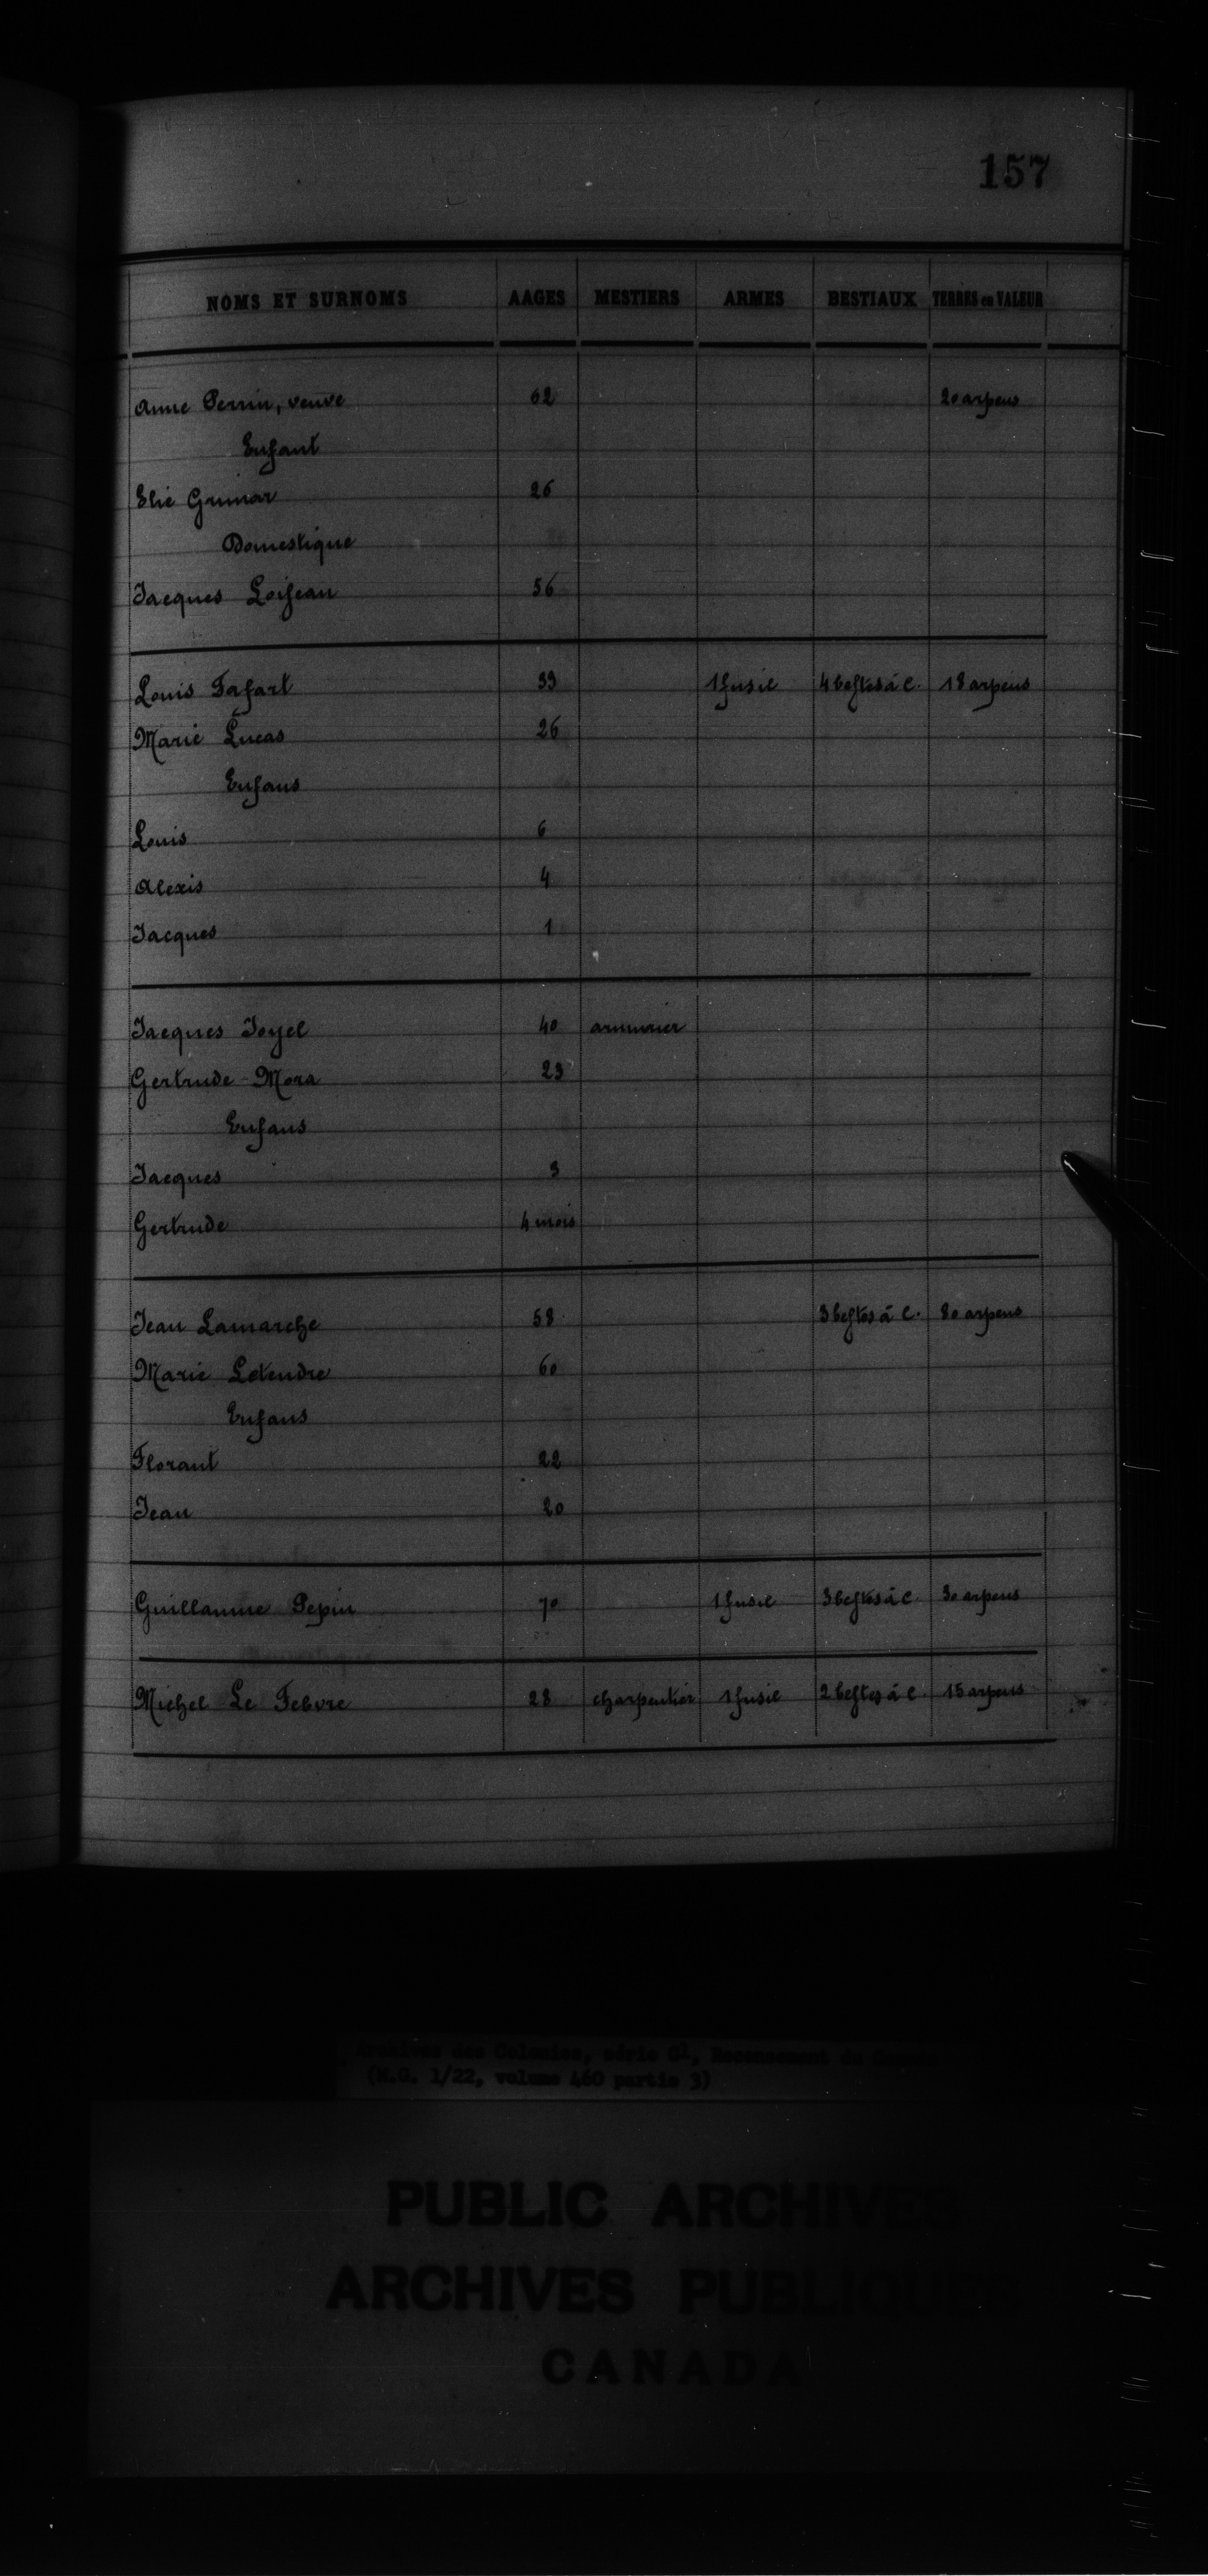 157
NOMS ET SURNOMS AAGES MESTIERS ARMES BESTIAUX TERRES en VALEUR
Anne Perrin, veuve 62 20 arpens
Enfant
Elie Grimar 26
Domestique
Jacques Loiseau 56
Louis Fafart 33 1 fusil 4 bestes à c. 18 arpens
Marie Lucas 26
Enfans
Louis 6
Alexis 4
Jacques 1
Jacques Joyel 40 armurier
Gertrude Mora 23
Enfans
Jacques 3
Gertrude 4 mois
Jean Lamarche 58 3 bestes à c. 80 arpens
Marie Letendre 60
Enfans
Florant 22
Jean 20
Guillaume Pepin 70 1 fusil 3 bestes à c. 30 arpens
Michel Le Febvre 28 charpentier 1 fusil 2 bestes à c. 15 arpens
Archives des Colonies, série G1, Recensement du
(M.G. 1/22, volume 460 partie 3)
PUBLIC ARCHIVES
ARCHIVES PUBLIQUES
CANADA